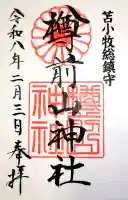 苫小牧総鎮守
樽前山神社
令和八年二月三日奉拝